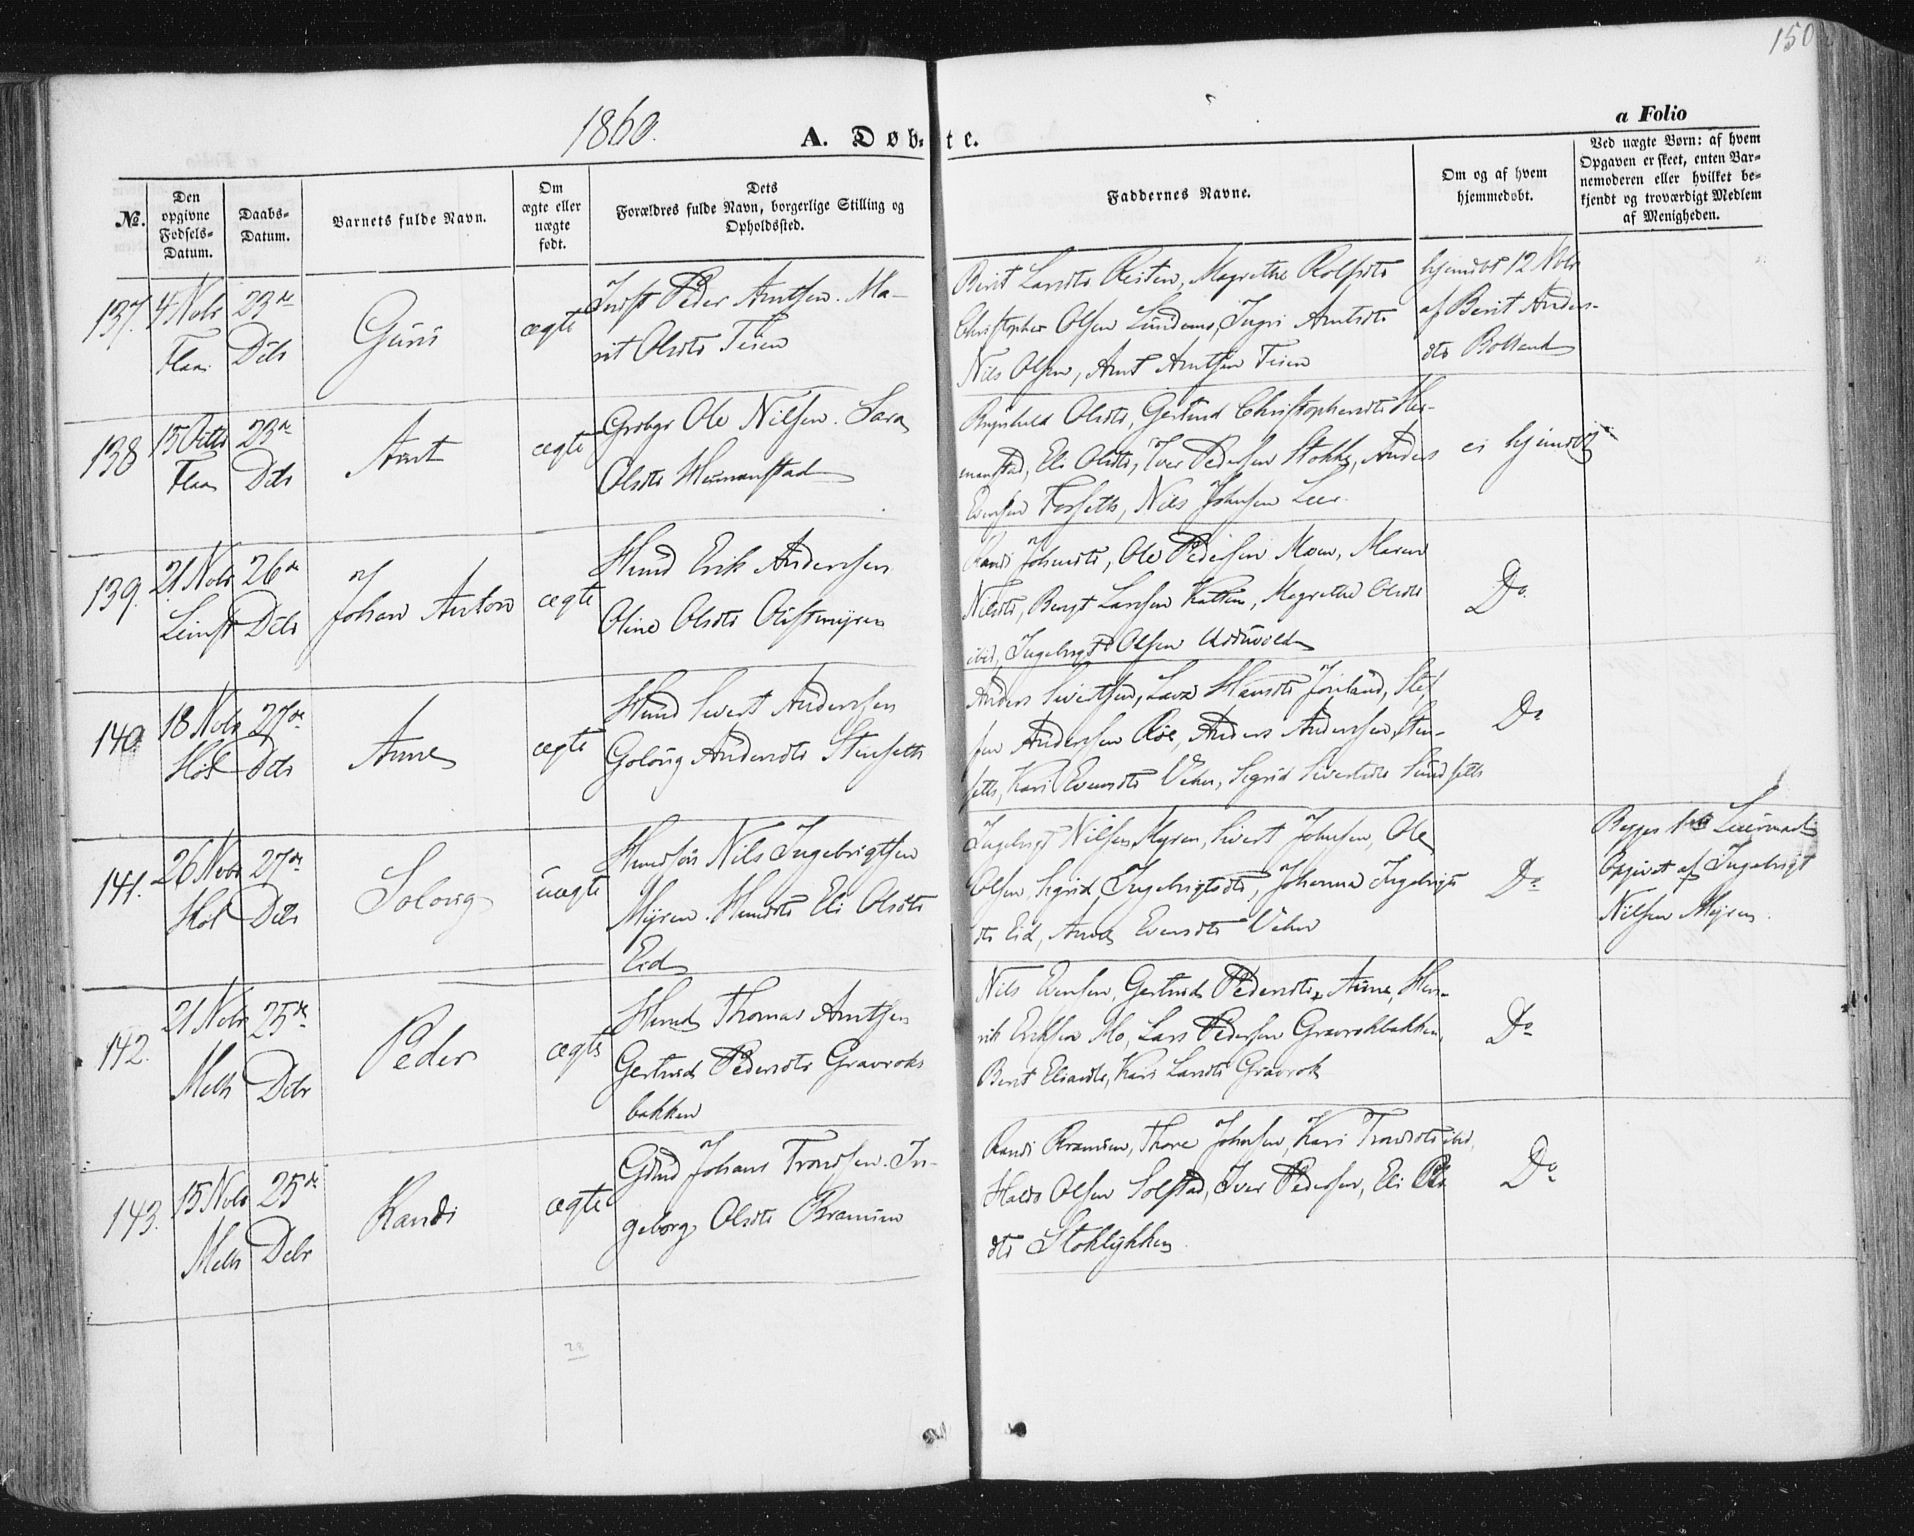 150
1860.
A. Døbte.
a Folio
No.
Den opgivne Fødsels-Datum.
Daabs-Datum.
Barnets fulde Navn.
Om ægte eller uægte født.
Dets Forældres fulde Navn, borgerlige Stilling og Opholdssted.
Faddernes Navne.
Om og af hvem hjemmedøbt.
Ved uægte Børn: af hvem Opgaven er skeet, enten Barnemoderen eller hvilket bekjendt og troværdigt Medlem af Menigheden.
137. 4 Nobr Flaa
23de Dcbr
Guru
ægte
Indst Peder Arntsen. Ma-
rit Olsdtr Teien
Berit Larsdtr Reiten, Magrethe Rolfsdtr
Christopher Olsen Lundemo, Ingri Arntsdtr
Nils Olsen, Arnt Arntsen Teien
hjemdbt 12 Nobr
af Berit Anders-
dtr
138 15 Octbr Flaa
23de Dcbr
Arnt
ægte
Grdbgr Ole Nilsen. Sara
Olsdtr Hermanstad
Ragnhild Olsdtr, Gertrud Christophersdtr Her-
manstad, Eli Olsdtr, Iver Pedersen Stokke, Anders
Evensen Forseth, Nils Johnsen Leer.
ei hjemdbt
139. 21 Nobr Leinst
26de Dcbr
Johan Anton
ægte
Hmd Erik Andersen
Oline Olsdtr Øistmyren
Randi Johnsdtr, Ole Pedersen Moen, Maren
Nilsdtr, Bengt Larsen Kattem, Magrethe Olsdtr
ibid, Ingebrigt Olsen Udduvold
Do
140 18 Nobr Høl
27de Dcbr
Anne
ægte
Hmd Sivert Andersen
Goløug Andersdtr Stenseth
Anders Sivertsen, Hansdtr Jonland, Stef
fen Andersen Røe, Anders Andersen Sten-
seth, Kari Evensdtr Uhen, Sigrid Sivertsdtr Sundseth
Do
141. 26 Nobr Høl
27de Dcbr
Soloug
uægte
Nils Ingebrigtsen
Myren. Hmdtr Eli Olsdtr
Eid
Ingebrigt Nilsen Myren, Sivert Johnsen, Ole
Olsen, Sigrid Ingebrigtsdtr, Johanna Ingebrigts
dtr Eid, Anne Evensdtr Uhen
Do
Begges 1ste Leiermaal
Opgivet af Ingebrigt
Nilsen Myren.
142. 21 Nobr Melh
25de Dcbr
Peder
ægte
Hmd Thomas Arntsen
Gertrud Pedersdtr Gravrok
bakken
Nils Evensen, Gertrud Pedersdtr, Anne, Hen-
rik Eriksen Mo, Lars Pedersen Gravrokbakken,
Berit Eliasdtr, Kari Larsdtr Gravrok
Do
143. 15 Nobr Melh
25de Dcbr
Randi
ægte
Grmd Johans Trondsen. In-
geborg Olsdtr Bramuen
Randi Bramuen, Thore Johnsen, Kari Trondsdtr ibid,
Olsen Solstad, Iver Pedersen, Eli
dtr Stoklykken
Do
28